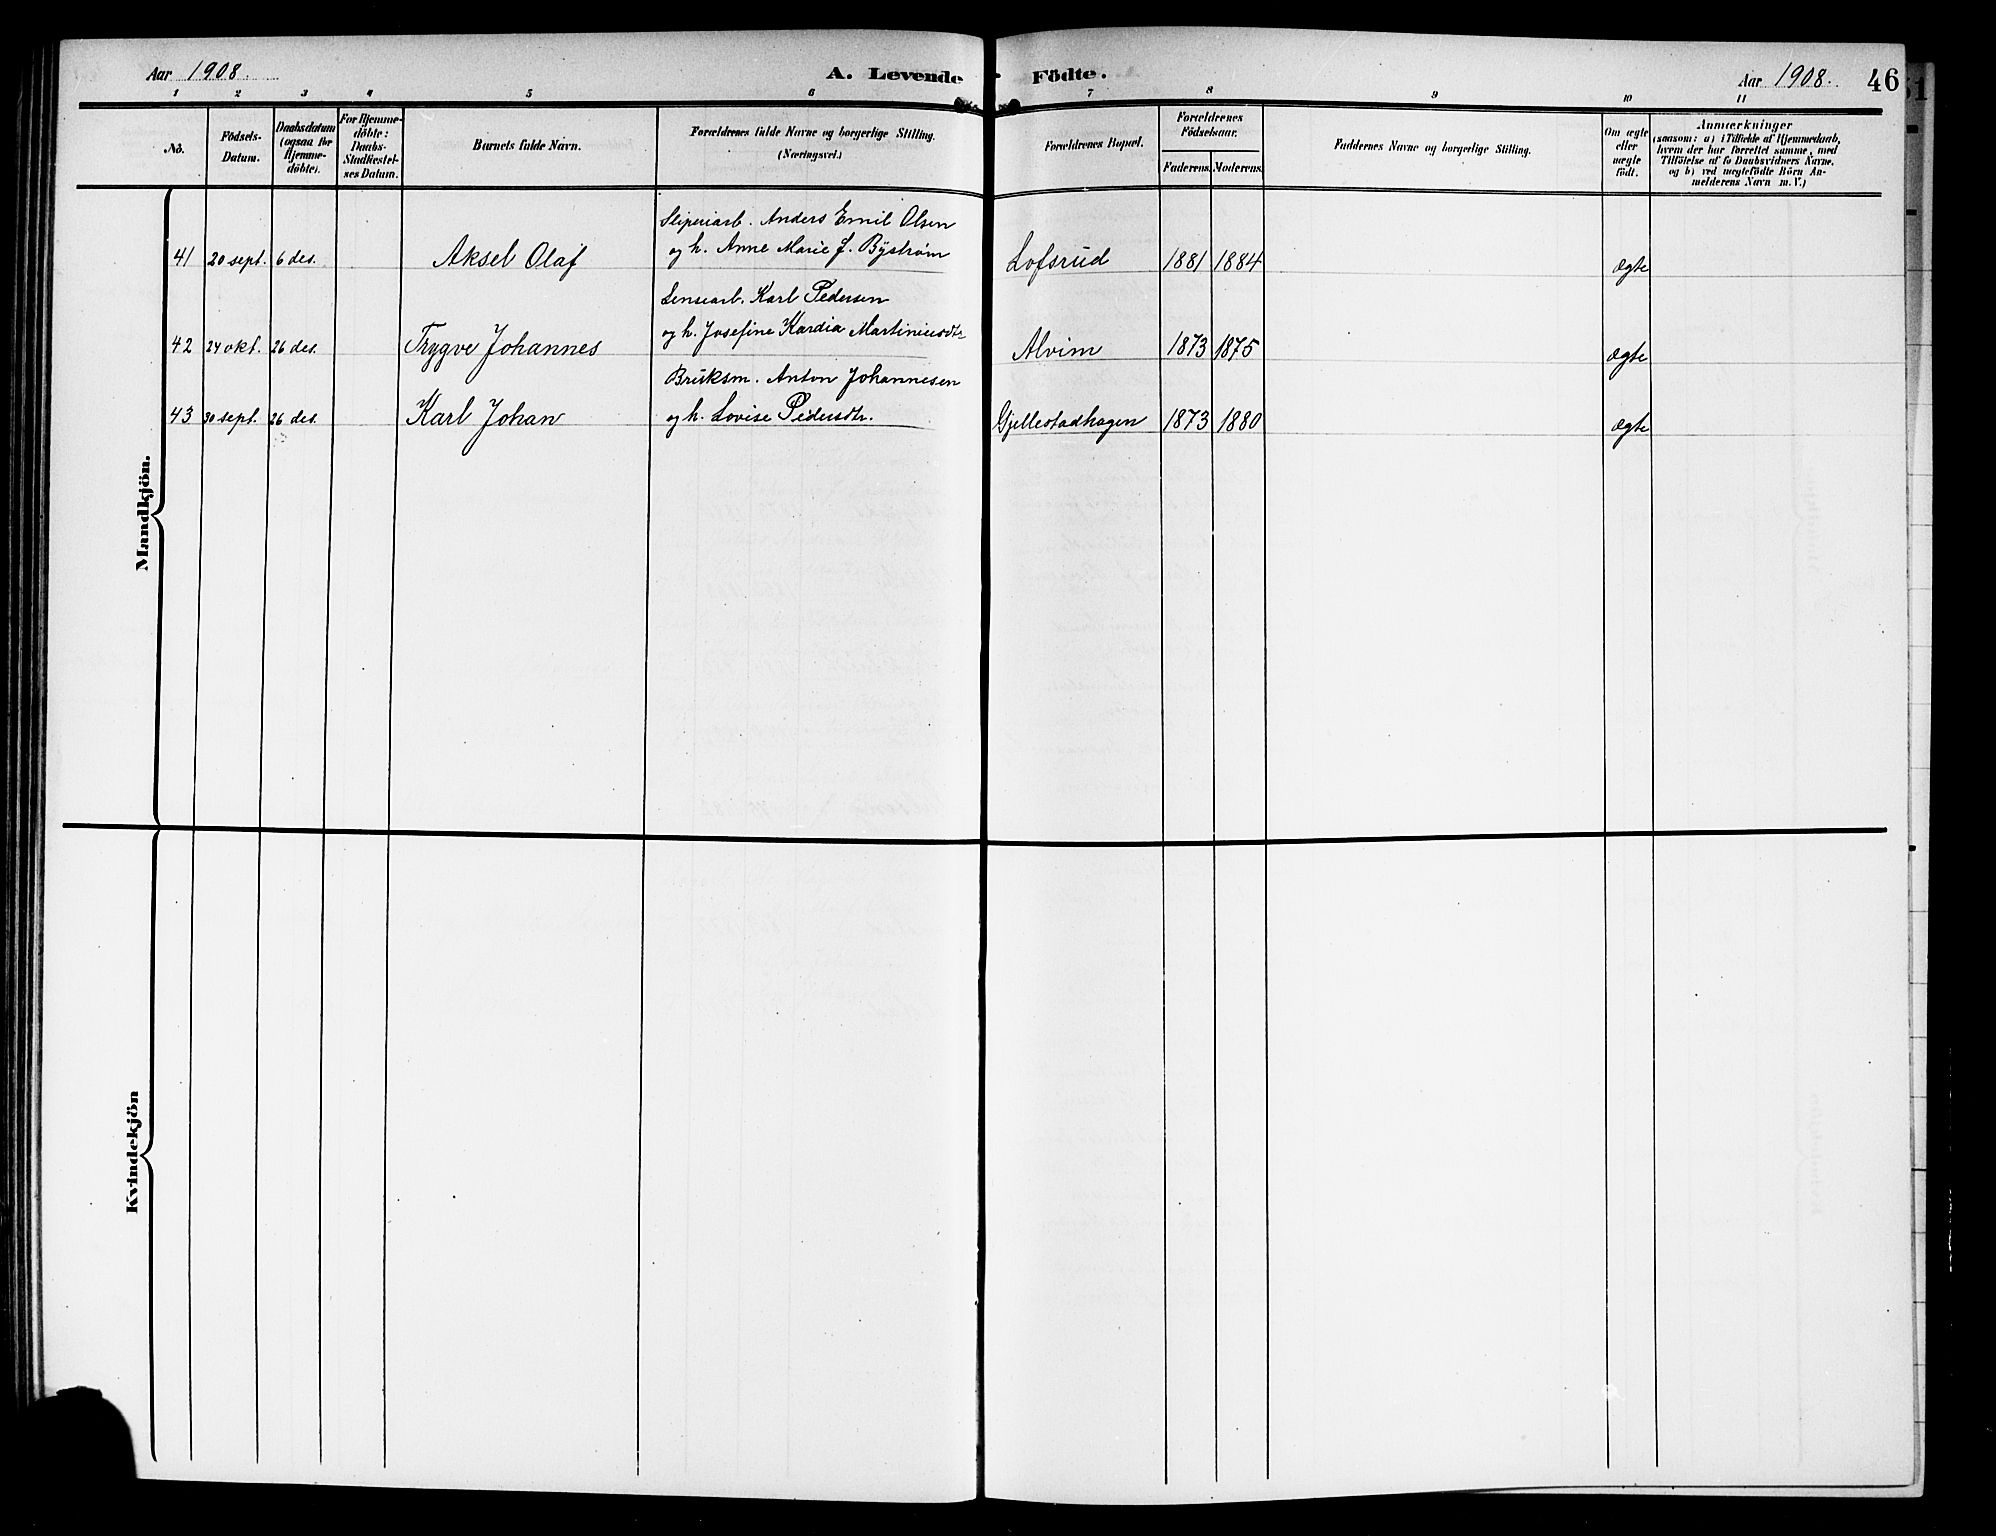 Aar 1908.
A. Levende Födte.
Aar 1908.
46
1 2 3 4 5 6 7 8 9 10 11
No.
Födsels-
Datum.
Daabsdatum
(ogsaa for
Hjemme-
döbte).
For Hjemme-
döbte:
Daabs-
Stadfæstel-
ses Datum.
Barnets fulde Navn.
Forældrenes fulde Navne og borgerlige Stilling.
(Næringsvei.)
Forældrenes Bopæl.
Forældrenes
Födselsaar.
Faderens. Moderens.
Faddernes Navne og borgerlige Stilling.
Om ægte
eller
uægte
födt.
Anmærkninger
(saasom: a) i Tilfælde af Hjemmedaab,
hvem der har forrettet samme, med
Tilföielse af to Daabsvidners Navne.
og b) ved uægtefödte Börn An-
melderens Navn m. V.)
Mandkjön.
Sliperiarb. Anders Emil Olsen
41 20 sept. 6 des. Aksel Olaf og h. Anne Marie f. Byström Lofsrud 1881 1884 ægte
Lensearb. Karl Pedersen
42 24 okt. 26 des. Trygve Johannes og h. Josefine Kardia Martiniusdtr Alvim 1873 1875 ægte
Bruksm. Anton Johannesen
43 30 sept. 26 des. Karl Johan og h. Lovise Pedersdtr. Gjellestadhagen 1873 1880 ægte
Kvindekjön